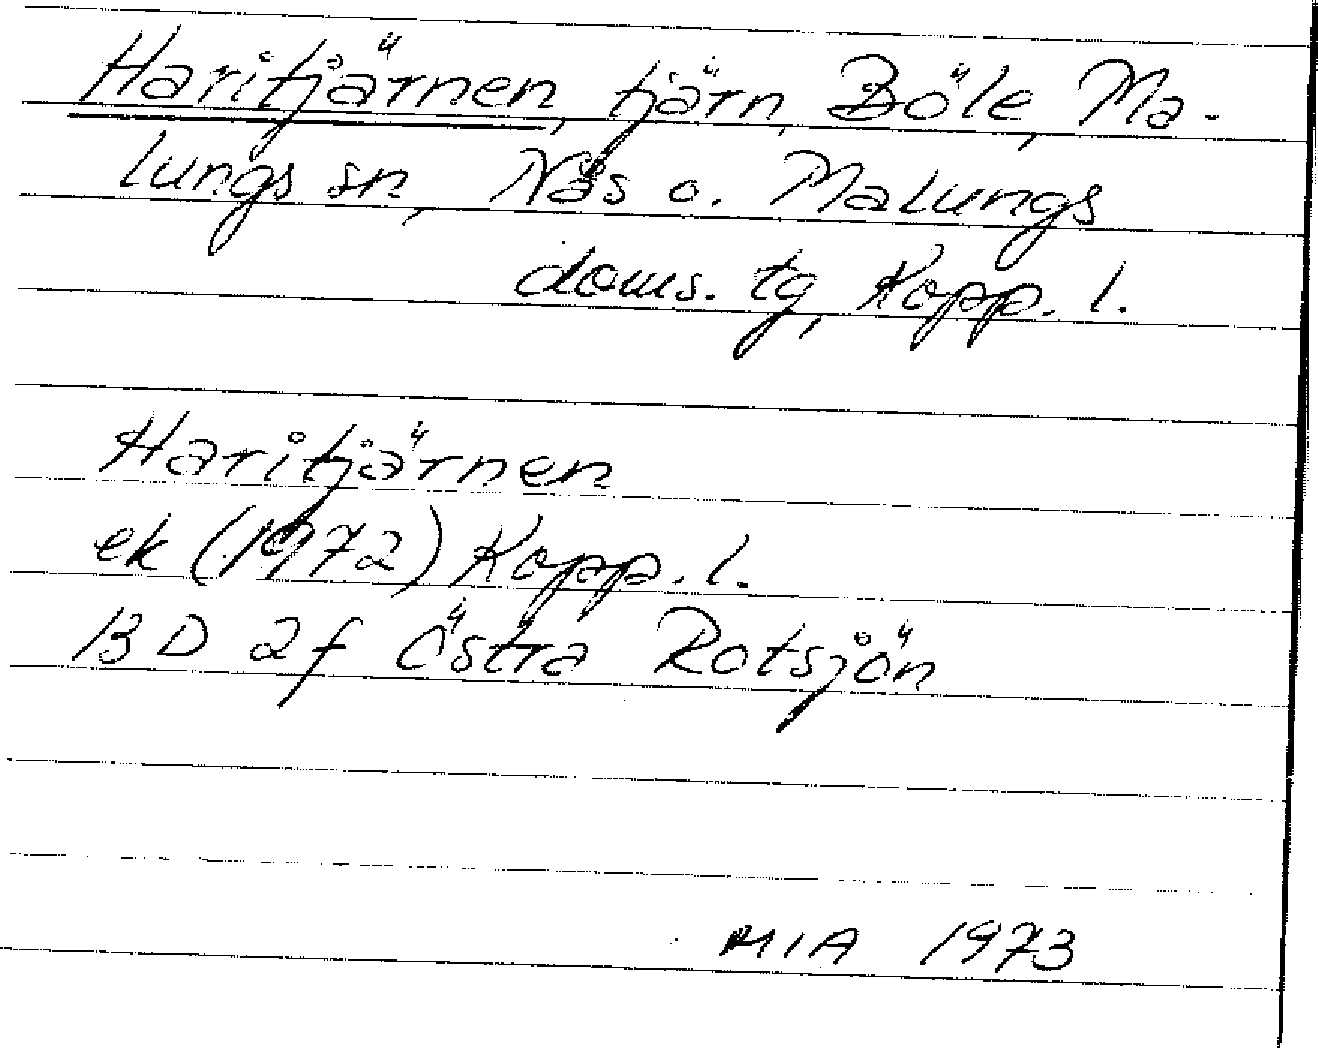 Haritjärnen, tjärn, Böle, Ma-
lungs sn, Näs o. Malungs
doms. tg, Kopp. l.
Haritjärnen
ek (1972) Kopp. l.
13 D 2f Östra Rotsjön
MIA 1973